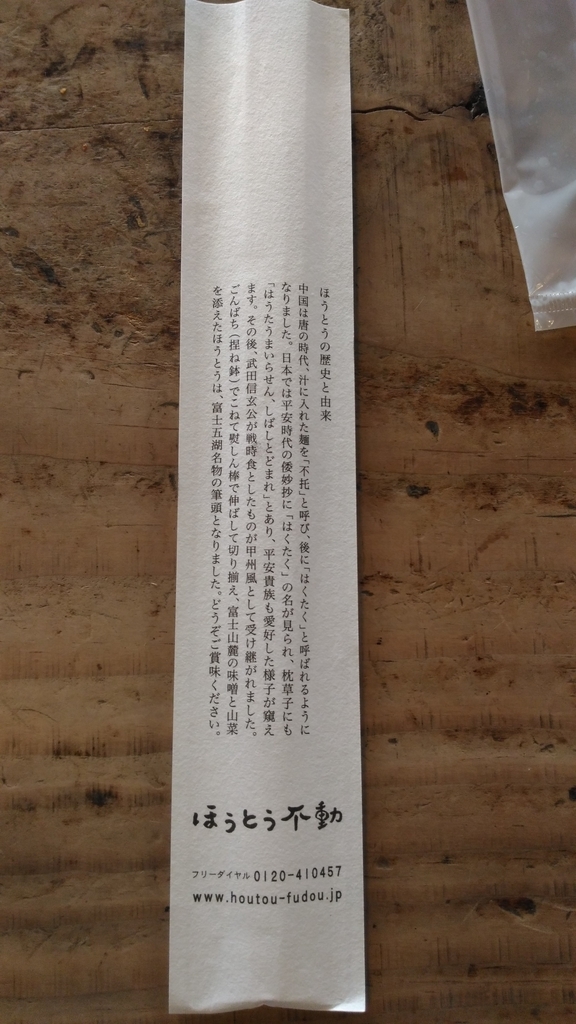 ほうとうの歴史と由来
中国は唐の時代、汁に入れた麺を「不托」と呼び、後に「はくたく」と呼ばれるように
なりました。日本では平安時代の倭妙抄に「はくたく」の名が見られ、枕草子にも
「はうたうまいらせん、しばしとどまれ」とあり、平安貴族も愛好した様子が窺え
ます。その後、武田信玄公が戦時食としたものが甲州風として受け継がれました。
ごんばち（捏ね鉢）でこねて熨しん棒で伸ばして切り揃え、富士山麓の味噌と山菜
を添えたほうとうは、富士五湖名物の筆頭となりました。どうぞご賞味ください。
ほうとう不動
フリーダイヤル 0120-410457
www.houtou-fudou.jp